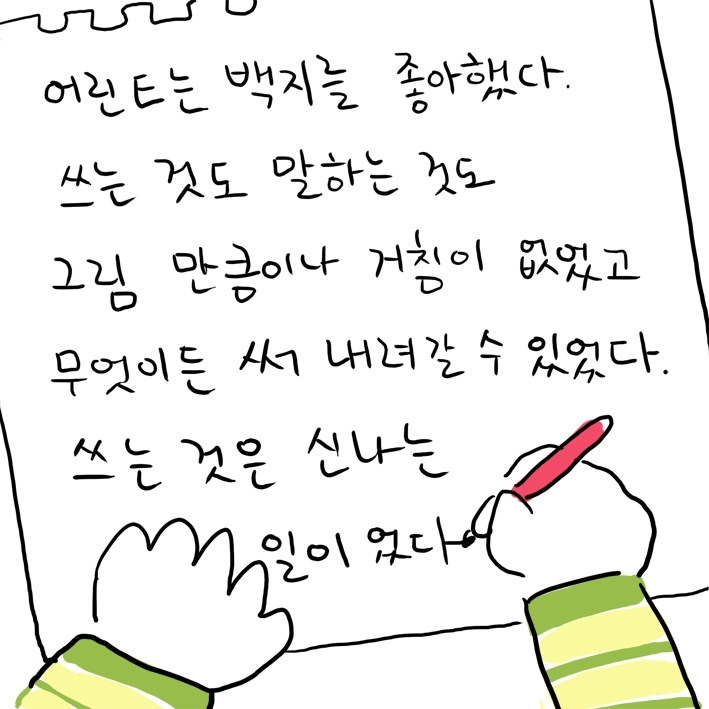 어린 E는 백지를 좋아했다.
쓰는 것도 말하는 것도
그림 만큼이나 거침이 없었고
무엇이든 써 내려갈 수 있었다.
쓰는 것은 신나는
일이 었다